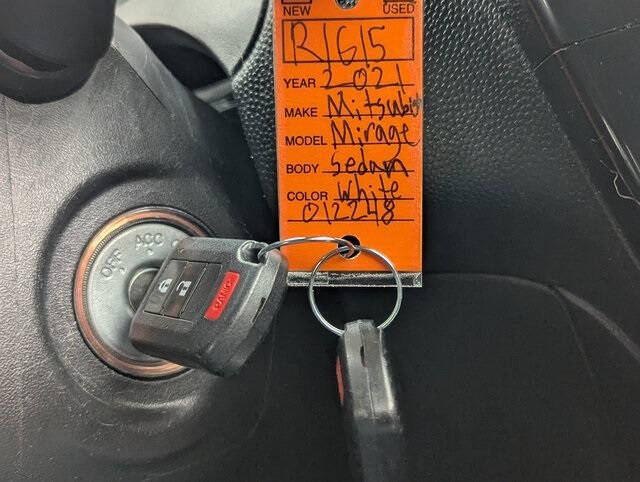 NEW USED
R1615
YEAR 2021
MAKE Mitsubishi
MODEL Mirage
BODY Sedan
COLOR White
012248
OFF ACC
PANIC